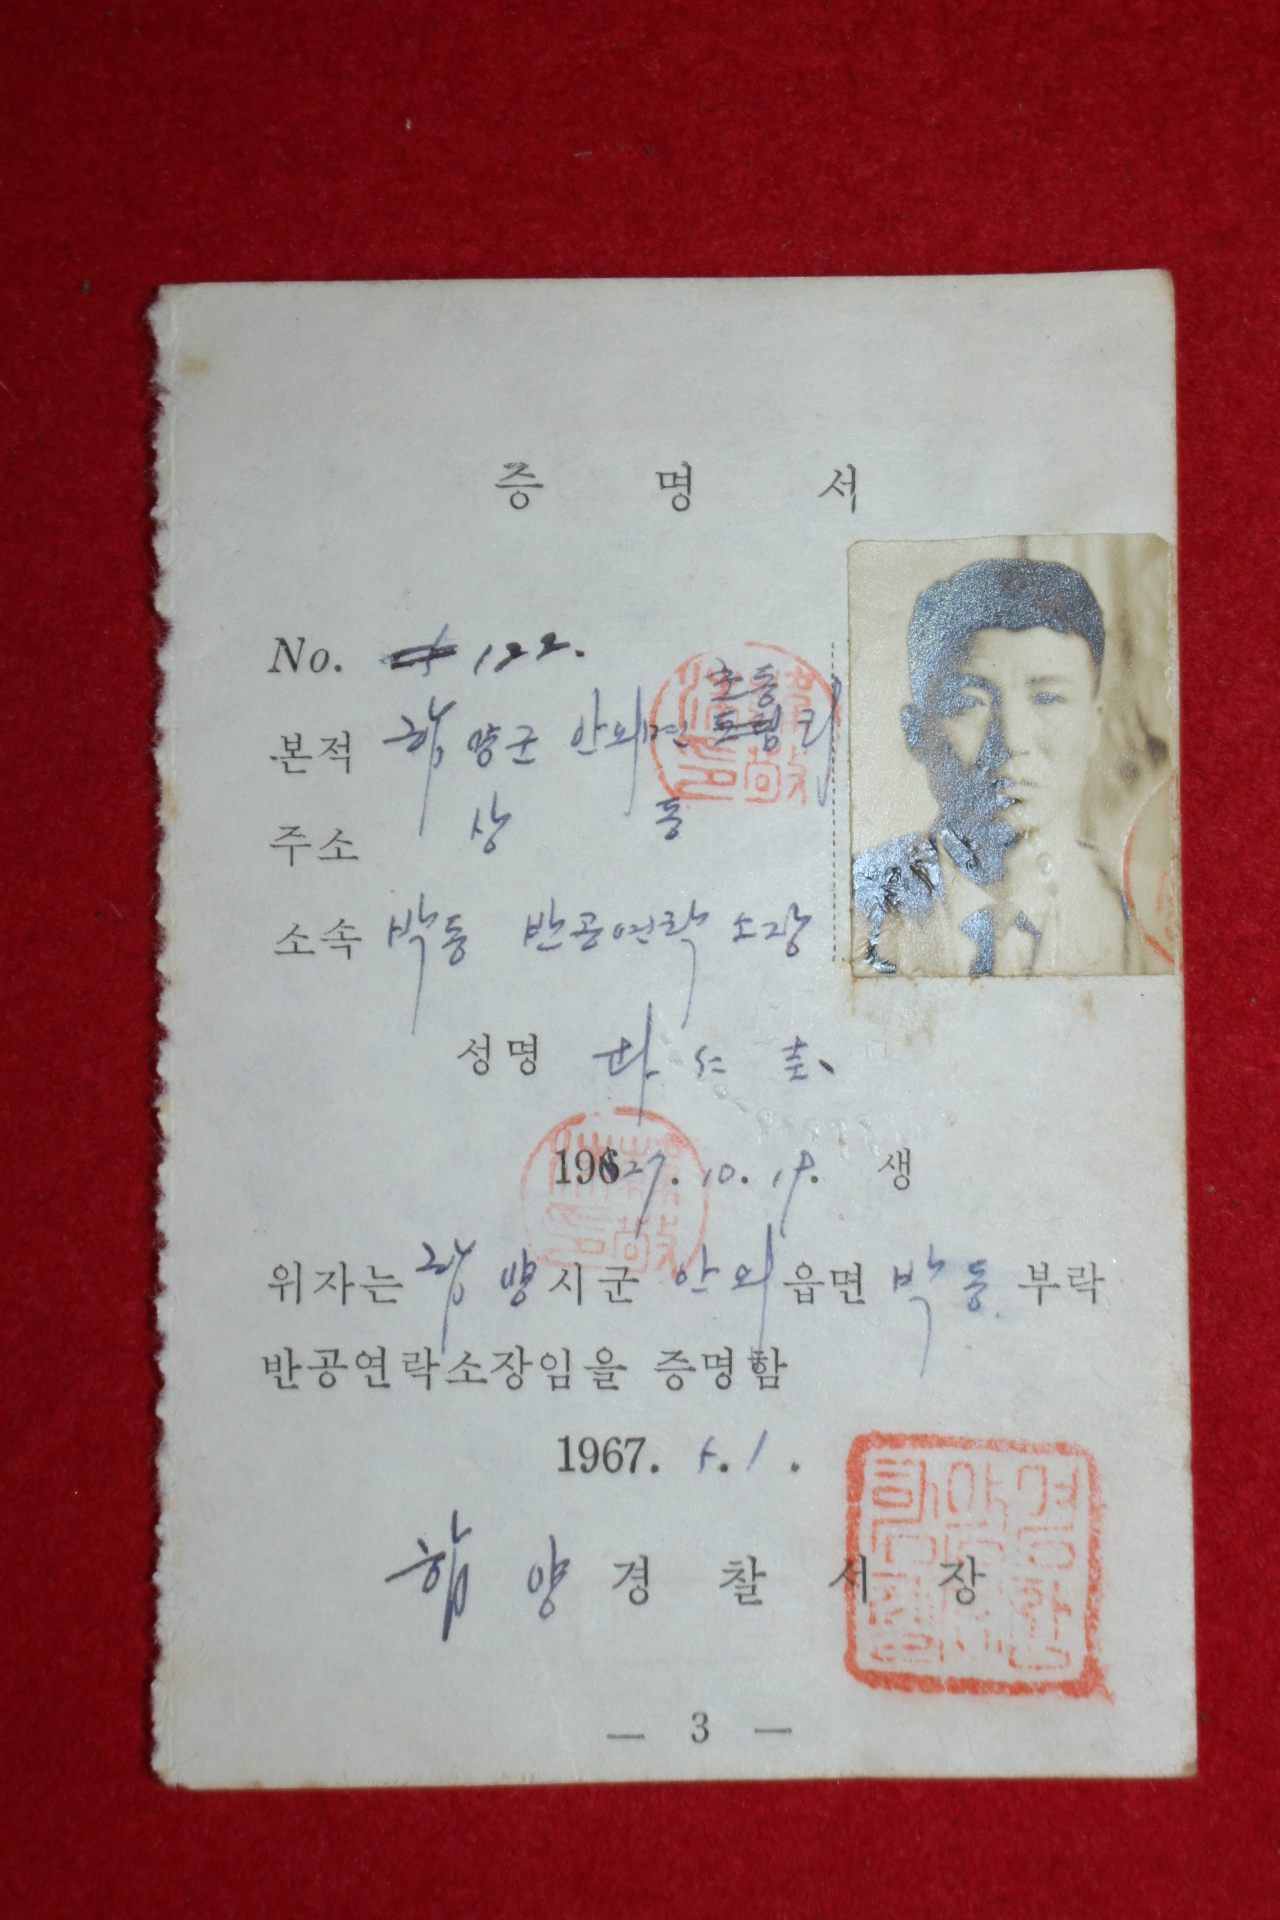 증 명 서
No. 122.
초동
본적 함양군 안의면 도림리
주소 상 동
소속 박동 반공연락소장
성명
1927. 10. 19. 생
위자는 함양시군 안의읍면 박동부락
반공연락소장임을 증명함
1967. 5. 1.
함양경찰서장
— 3 —